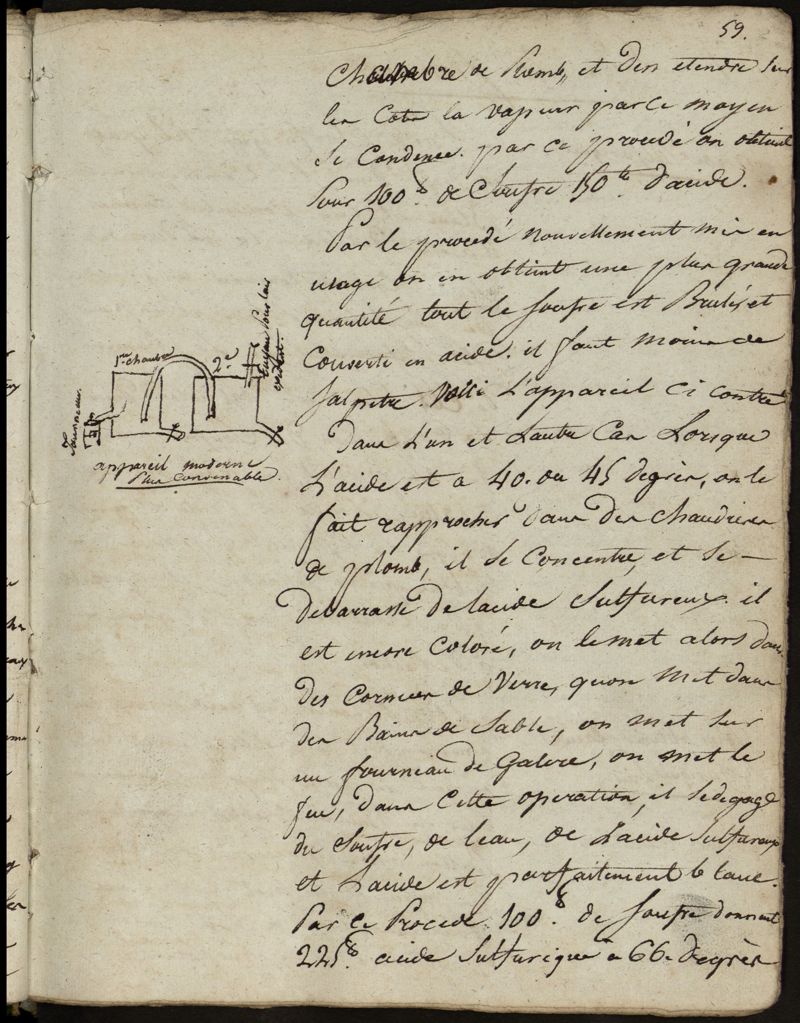 59.
Chambre de Plomb, et d'en etendre sur
les Cotés la vapeur par ce moyen
se Condence. par ce procedé on obtient
pour 100 de Soufre 150 d'acide.
Par le procedé nouvellement mis en
usage on en obtient une plus grande
quantité tout le soufre est Brulés et
Converti en acide. il faut moins de
Salpetre. Voici L'appareil ci contre
Dans L'un et L'autre Cas Lorsque
L'acide est a 40. ou 45 degrés, on le
fait rapprocher dans des Chaudieres
de plomb, il se Concentre, et se
debarrasse de lacide Sulfureux. il
est encore Coloré, on le met alors dans
des Cornues de Verre, quon met dans
des Bains de Sable, on met sur
un fourneau de Galere, on met le
feu, dans Cette operation, il se degage
du Soufre, de leau, de L'acide Sulfureux
et L'acide est parfaitement blanc.
Par ce Procedé 100 de Soufre donnent
225 acide Sulfurique a 66. degrés
1re chambre
2e
Fourneau.
tuyau pour lair
appareil moderne
Plus Convenable.